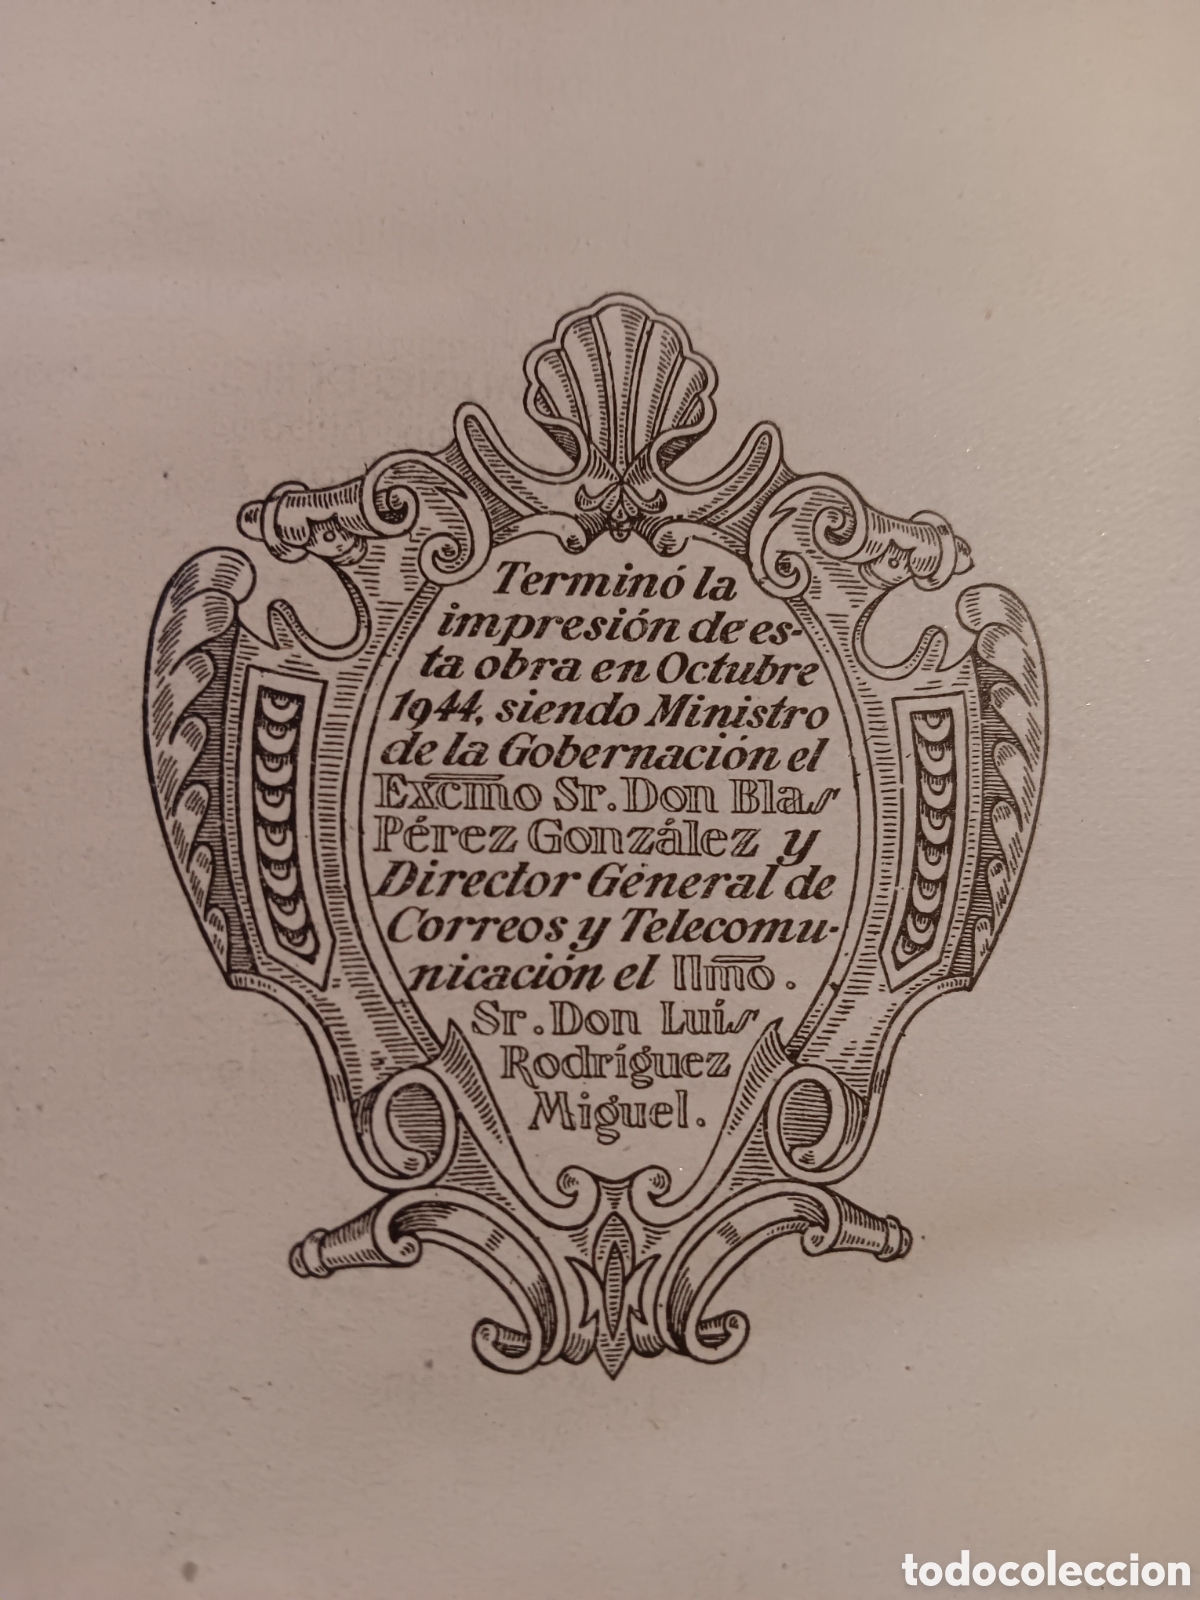 Terminó la
impresión de es-
ta obra en Octubre
1944, siendo Ministro
de la Gobernación el
Excmo Sr. Don Blas
Pérez González y
Director General de
Correos y Telecomu-
nicación el Ilmo.
Sr. Don Luís
Rodríguez
Miguel.
todocoleccion